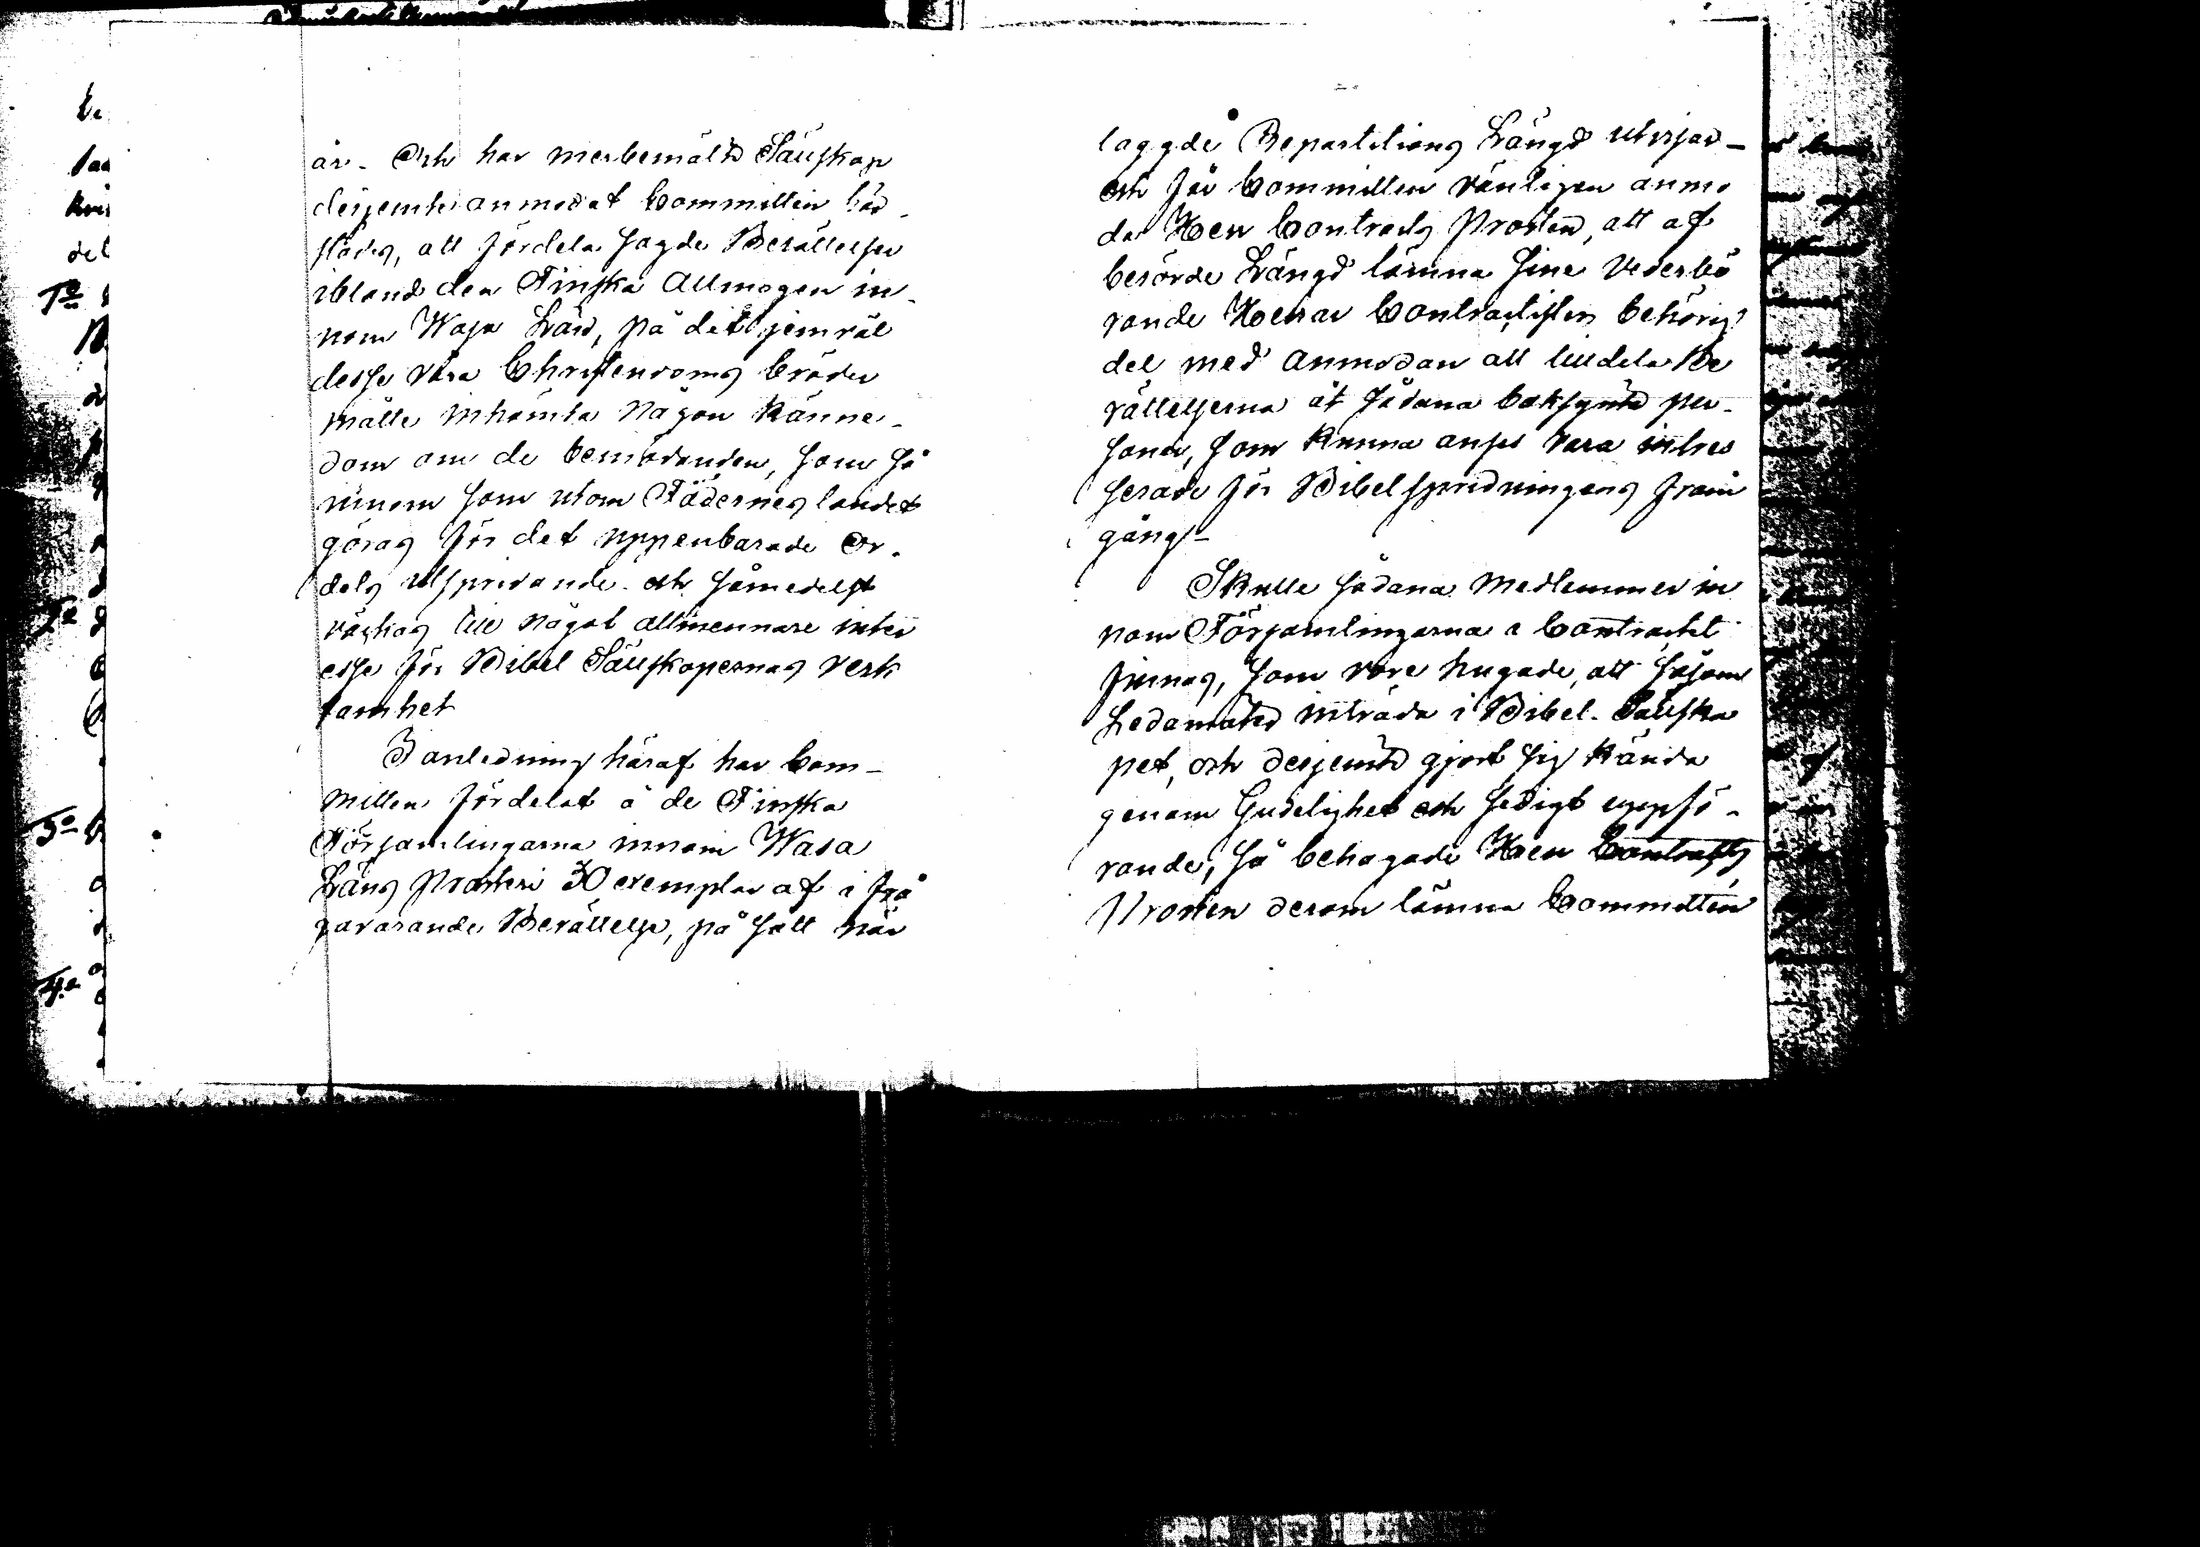 år. Och har merbemälte Sällskap
desjemte anmodat Committén här-
städes, att fördela sagde Berättelser
ibland den Finska Allmogen in-
nom Wasa Län, på det jemväl
desse våra Christendoms bröder
måtte inhämta någon känne-
dom om de bemödanden, som så
innom som utom Fäderneslandet
göras för det uppenbarade Or-
dets utspridande och såmedelst
väckas till något allmennare intr
esse för Bibel Sällskapernas verk
samhet
I anledning häraf har Com-
mitten fördelat å de Finska
Församlingarna innom Wasa
Läns Prosteri 30 exemplar af i frå
gavarande Berättelse, på sätt när
laggde Repartitions Längd utvisar-
och får Committen vänligen anmo
da Herr Contracts Prosten, att af
berörde Längd lämna sine vederbö
rande Herrar Contractister behörig
del med anmodan att tilldela Be
rättelserna åt sådana boksynte per-
soner, som kunna anses vara intres
serade för Bibelspridningens fram
gång-
Skulle sådana Medlemmer in
nom Församlingarna i Contractet
finnas, som vore hugade, att såsom
Ledamöter inträda i Bibel-Sällska
pet, och desjemte gjort sig kända
genom Gudelighet och sedigt uppfö-
rande, så behagade Herr Contracts
Prosten derom lämna Committén